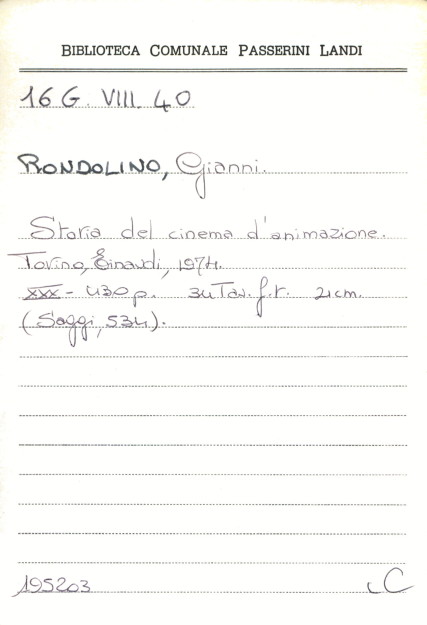 BIBLIOTECA COMUNALE PASSERINI LANDI
16 G. VIII. 40
RONDOLINO, Gianni.
Storia del cinema d'animazione.
Torino, Einaudi, 1974.
XXX - 430 p. 34 Tav. f.t. 21 cm.
(Saggi, 534).
195203 C